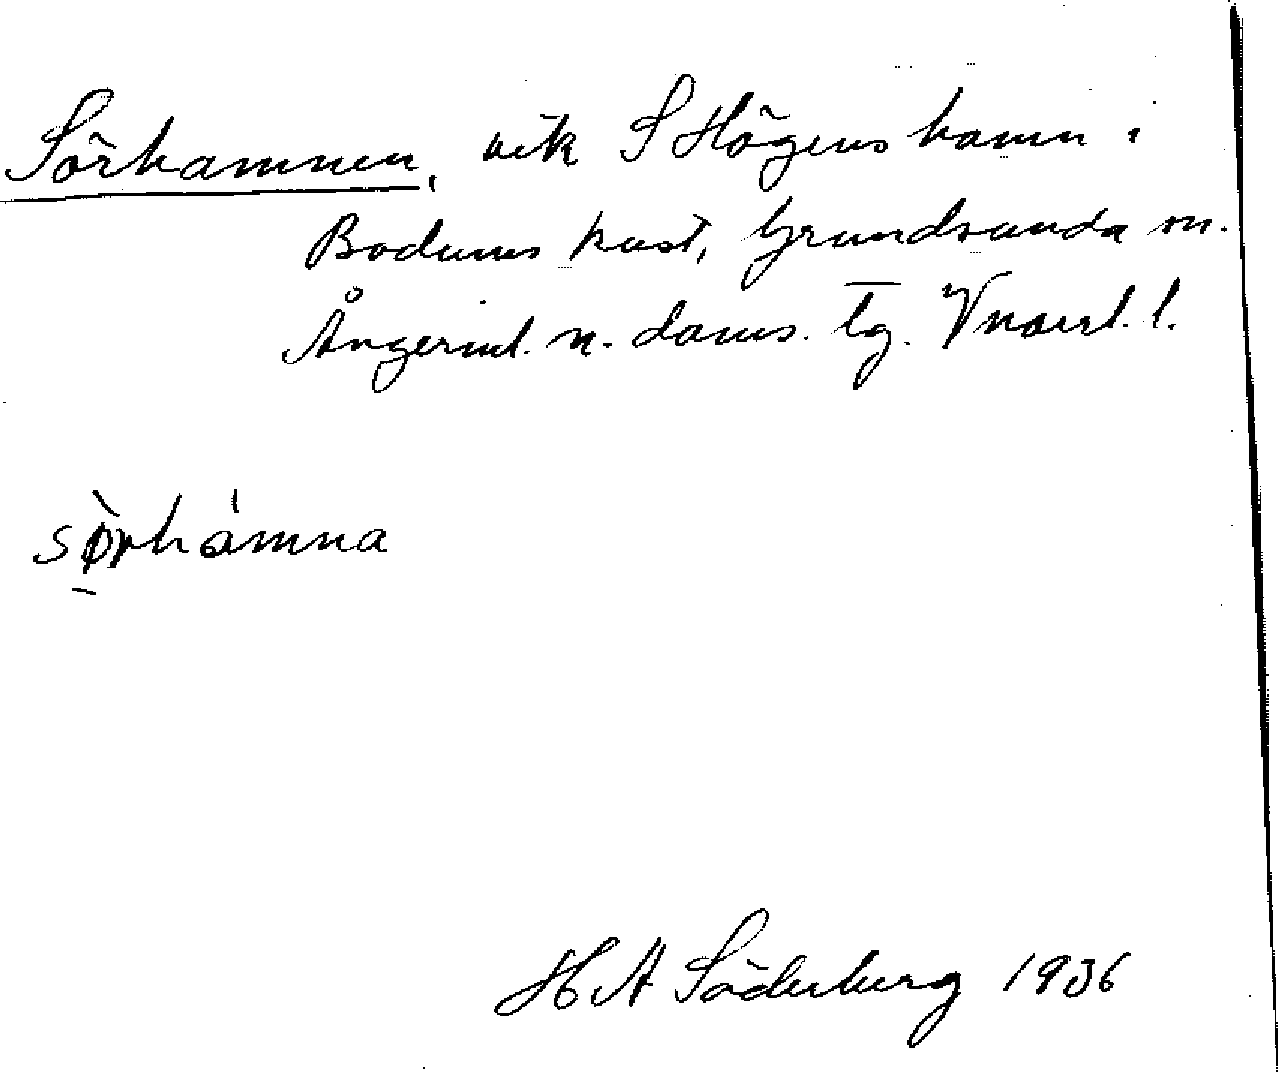 Sörhamnen, vik S Högens hamn i
Bodums kust, Grundsunda sn.
Ångerml. n. doms. tg. Vnorrl. l.
sø̀rhámna
H A Söderberg 1936